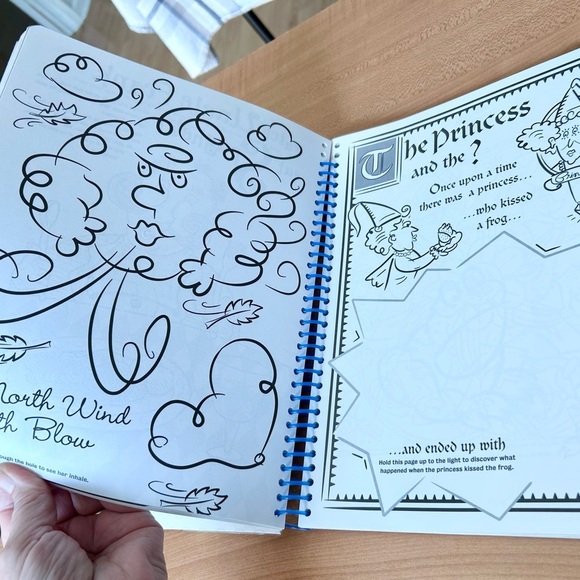 North Wind
th Blow
ough the hole to see her inhale.
The Princess
and the ?
Once upon a time
there was a princess...
...who kissed
a frog...
...and ended up with
Hold this page up to the light to discover what
happened when the princess kissed the frog.